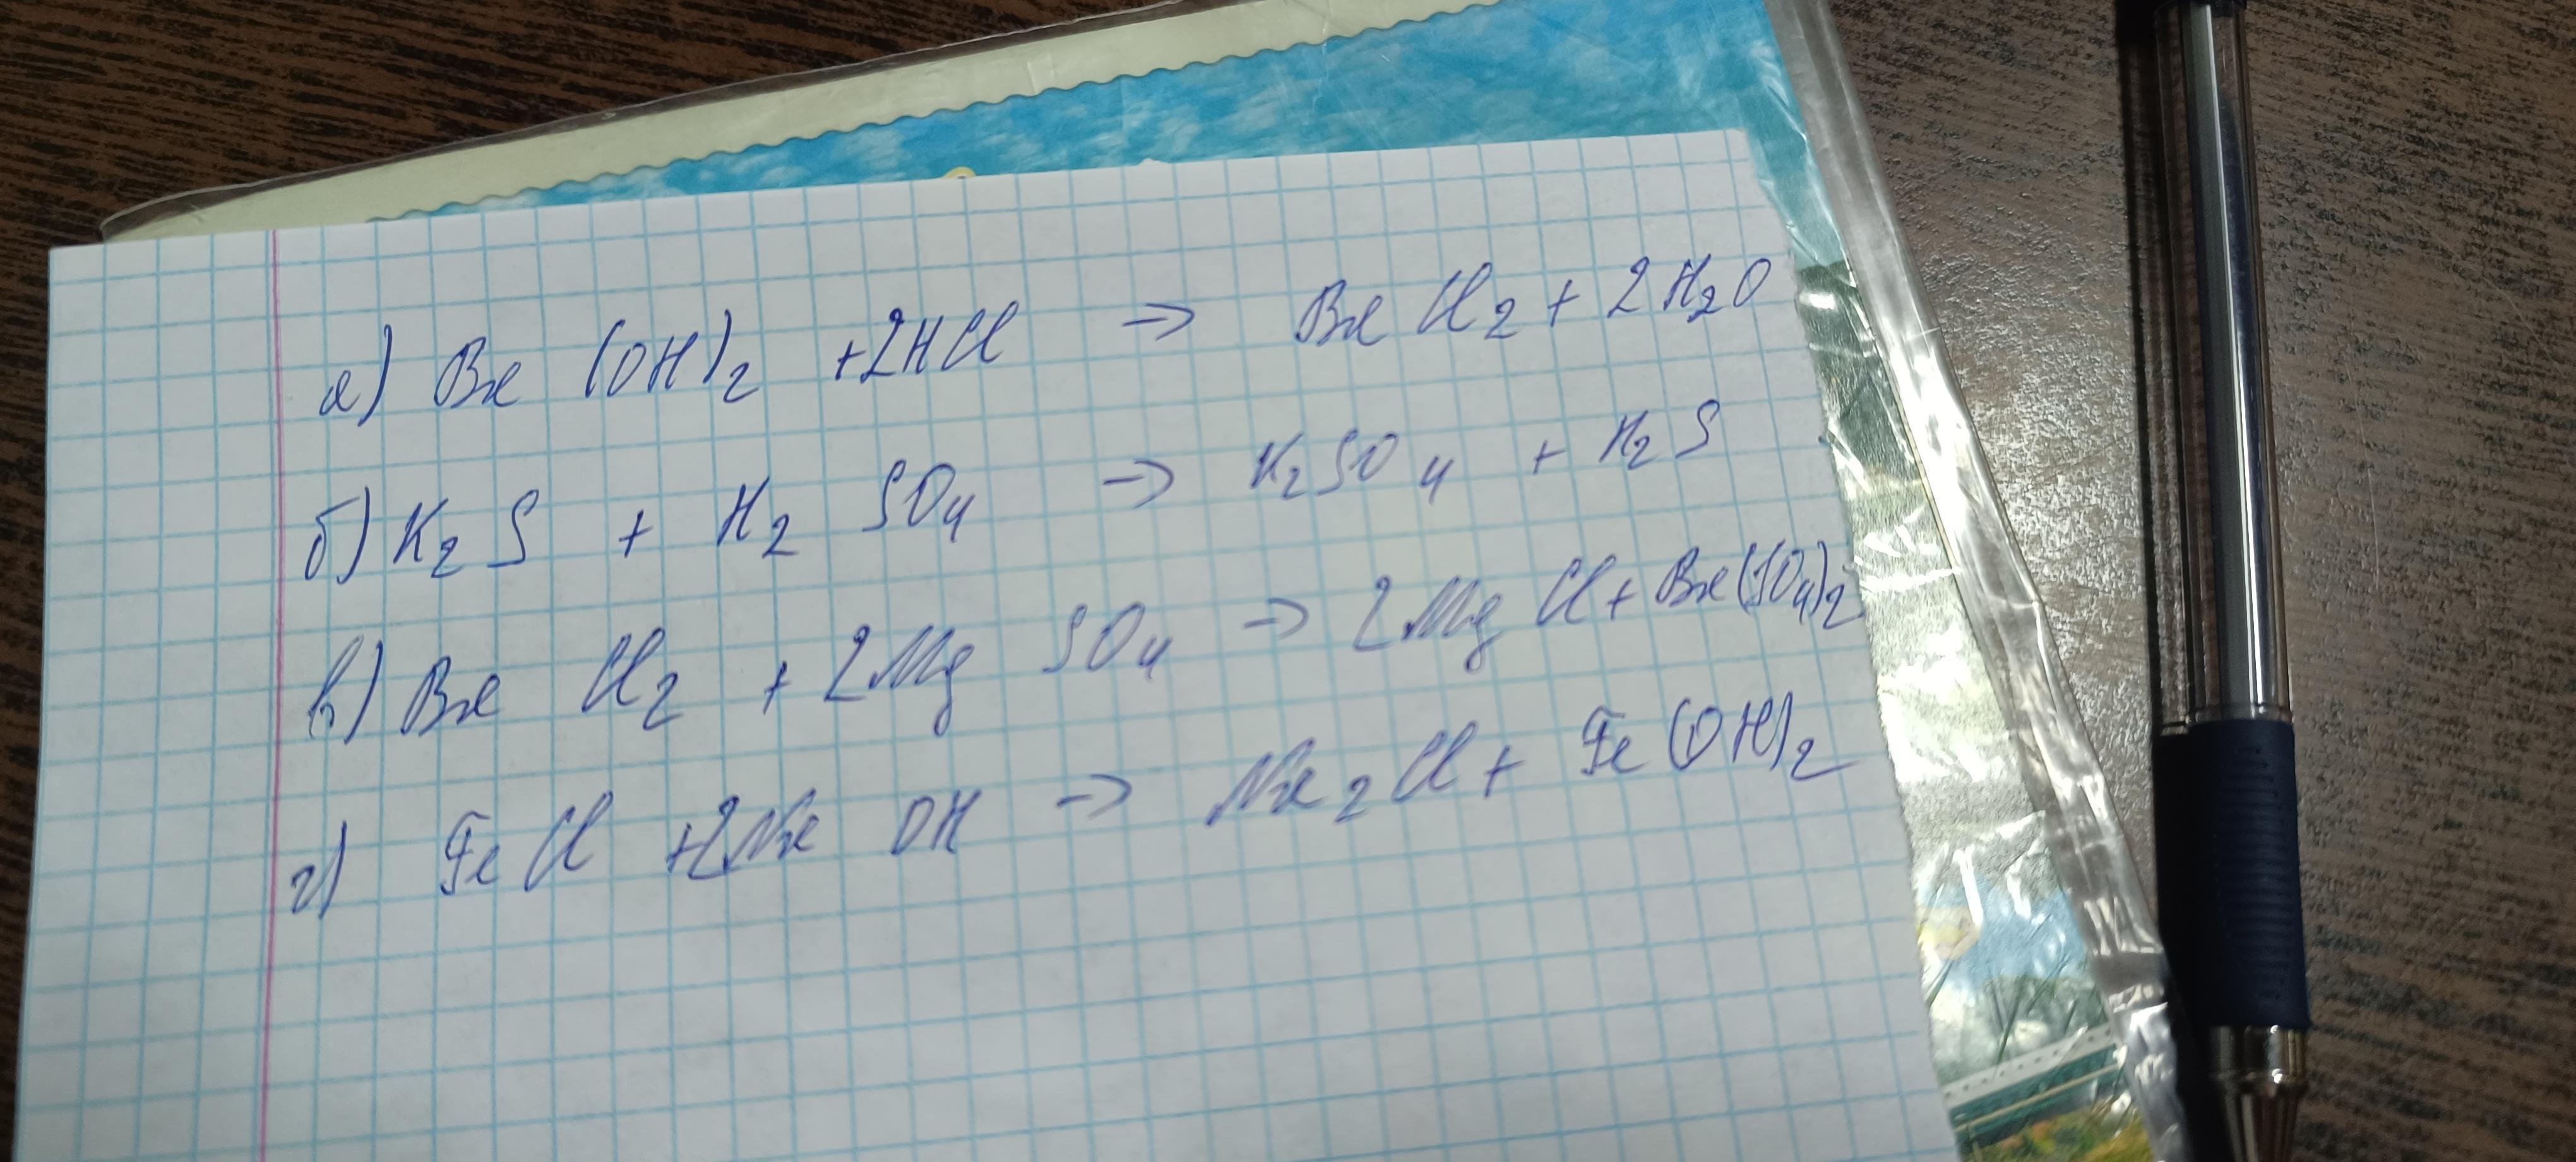 а) Ba (OH)2 + 2HCl → Ba Cl2 + 2H2O
б) K2 S + H2 SO4 → K2SO4 + H2 S
в) Ba Cl2 + 2Mg SO4 → 2Mg Cl + Ba(SO4)2
г) Fe Cl + 2Na OH → Na2Cl + Fe(OH)2